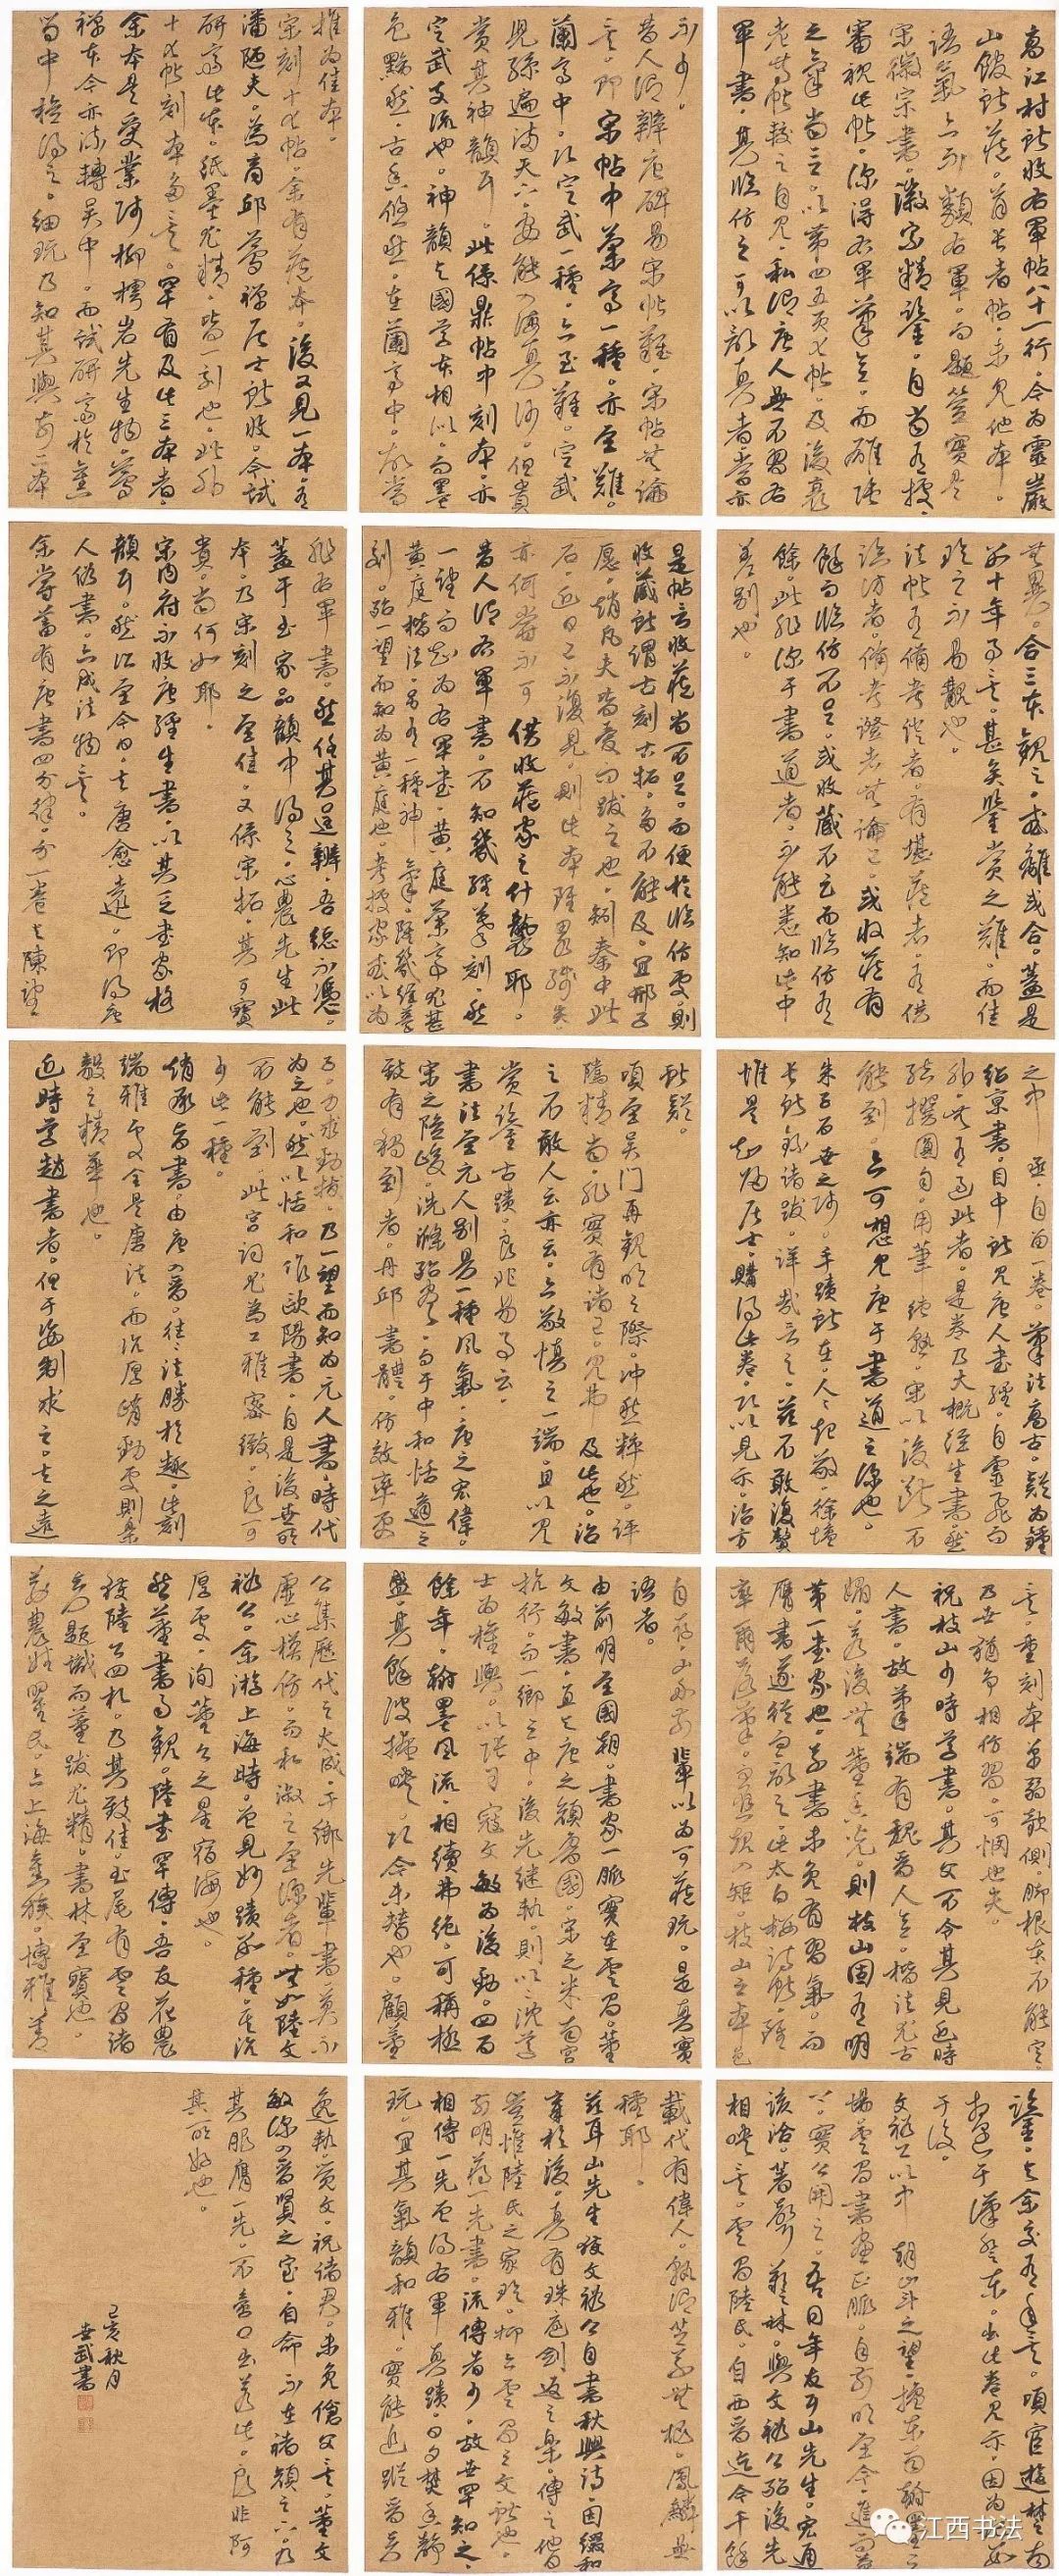 高江村所收右軍帖八十一行。今为靈巖
山館所藏。首長者帖。未見他本。
語氣亦不類右軍。而題簽實是
宋徽宗書。徽宗精鑒。自當有據。
審視此帖。深得右軍筆意。而雄强
之氣尚。以第四五頁七帖。及後
老等帖較之自見。私謂唐人無不習右
軍書。其臨仿之可以亂真者。當亦
不少。
昔人謂辨唐碑易宋帖難。宋帖無論
矣。即宋帖中蘭亭一種。亦至難。
蘭亭中。以定武一種。亦至難。定武
兒孫遍滿天下。安能入海算沙。但貴
賞其神韻耳。此係鼎帖中刻本。亦
定武支流也。神韻与國學本相似。而墨
色黝然。古香悠然。在蘭亭中。故當
推为佳本。
宋刻十七帖。余有藏本。後又見一本。有
潘陋夫。為商邱蕚禪居士所收。今試
研齋此本。紙墨尤精。皆一刻也。此外
十七帖刻本多矣。罕有及此三本者。
余本是受業師柳樗岩先生物。蕚
禪本今亦流轉吴中。而試研齋於舊
笥中檢得之。細玩乃知其與前二本
無異。合三本觀之。或離或合。蓋是
前十年事矣。甚矣鑒賞之難。而佳
玩之不易觀也。
法帖有備考證者。有堪藏者。有供
臨仿者。備考證者無論已。或收藏有
餘而臨仿不足。或收藏不足而臨仿有
餘。此非深于書道者。不能悉知此中
差别也。
是帖言收藏尚可足。而便於臨仿處。則
收藏所謂古刻古拓。多不能及。宜邢子
愿。趙凡夫皆愛而跋之也。秦中此
石。近日已不復見。則此本雖殘矣
亦何嘗不可供收藏家之什襲耶。
昔人得右軍書。不知幾經摹刻。然
一望而知为右軍書。黄庭蘭亭尤甚
黄庭楷法。另有一種神氣。雖幾經摹
刻。猶一望而知为黄庭也。考據家或以为
非右軍書。然任其辨。吾總不憑。
蓋于書家品韻中得之。心農先生此
本。乃宋刻之至佳。又係宋拓。其可寶
貴。當何如耶。
宋内府不收唐經生書。以其乏書家格
韻耳。然至今日。去唐愈遠。即得唐
人俗書。亦成法物矣。
余嘗蓄有唐書四分律。第一卷。与陳望
之中丞。自書一卷。筆法高古。疑为鍾
紹京書。目中所見唐人書經。自靈飛而
外。無有過此者。是卷乃大概經生書。然
結撰圓勻。用筆純熟。宋以後斷不
能到。亦可想見唐于書道之深也。
朱子百世之師。手蹟所在。人人起敬。徐壇
長所錄諸跋。详哉言之。兹不敢復贅
惟是知歸居士。購得此卷。以見示。治方
所疑。
頃至吴門再觀。之際。冲然粹然。評
騭精當。非實有諸己。見弗及此也。治
之不敢人云亦云。亦敬慎之一端。且以見
賞鑒古蹟。良非易事云。
書法至元人别另一種風氣。唐之宏偉。
宋之险峻。洗滌殆盡。而于中和恬適之
致有獨到者。丹邱書體。仿效率更
力求勁拔。乃一望而知为元人書。時代
为之也。然以恬和作歐陽書。自是後世所
不能到。此宫詞尤为工雅密緻。良可
少此一種。
承旨書。由唐入晋。往往法勝於趣。此刻
端雅處全是唐法。而沉厚峭勁處。則集
毅之精華也。
近時學趙書者。但于求之。去之遠
矣。重刻本弱欹側。腳根未不能定。
乃世猶争相仿習。可憫也夫。
祝枝山少時學書。其父不令其見近時
人書。故筆端有魏晋人意。楷法尤古
媚。若後無董香光。則枝山固有明
第一書家也。草書未免有習氣。而
膺書遂從而亂之。此太白梅詩帖。雖
率爾落筆。規入矩。枝山之本色
前輩以为可藏玩。是真賞
語者。
由前明至國朝。書家一脈實在雲間。董
文敏書。直与唐之顔魯國。宋之米南宫
抗行。而一鄉之中。後先继執。則以沈學
士为權輿。以張司寇文敏为後勁。四百
餘年。翰墨風流。相續弗绝。可稱極
盛。其餘波掩映。今未替也。顧董
公集歷代之大成。于鄉先輩書莫不
虚心模仿。而私淑之至深者。無如陸文
裕公。余游上海時。曾見妙蹟多種。其沉
厚處。洵董公之星宿海也。
然董書易觀。陸書罕傳。吾友花農
獲陸公四札。乃其致佳。書尾有雲間諸
家題識而董跋尤精。書林至寶也。
花農姓瞿氏。亦上海舊族。博雅善
鑒。与余交有年矣。頃宦遊楚南
相過于漢東。出此卷見示。因为跋
于後。
文裕公以中朝山斗之望。擅東南翰墨之
場。雲間書畫正脈。自前明至今。進而
上。實公開之。吾同年友耳山先生。宏通
該洽。著聲藝林。與文裕公殆後先
相映矣。雲間陸氏。自西晋迄今千餘
載代有偉人。孰謂芝草無根。鳳麟無
種耶。
兹耳山先生裝文裕公自書秋興詩。因綴和
章於後。真有珠還劍返之樂。傳之他日
豈惟陸氏之家珍。抑亦雲間之文獻也。
前明蒋一先書。流傳者少。故世罕知之。
相傳一先曾得右軍真蹟。日夕焚香静
玩。宜其氣韻和雅。實能追蹤晋
逸執。黄文。祝諸君。未免傖父矣。董文
敏深入晋賢之室。自命不在褚顔之下。乃
其服膺一先。不啻口出若此。良非阿
其所好也。
己亥秋月
世武書
江西书法